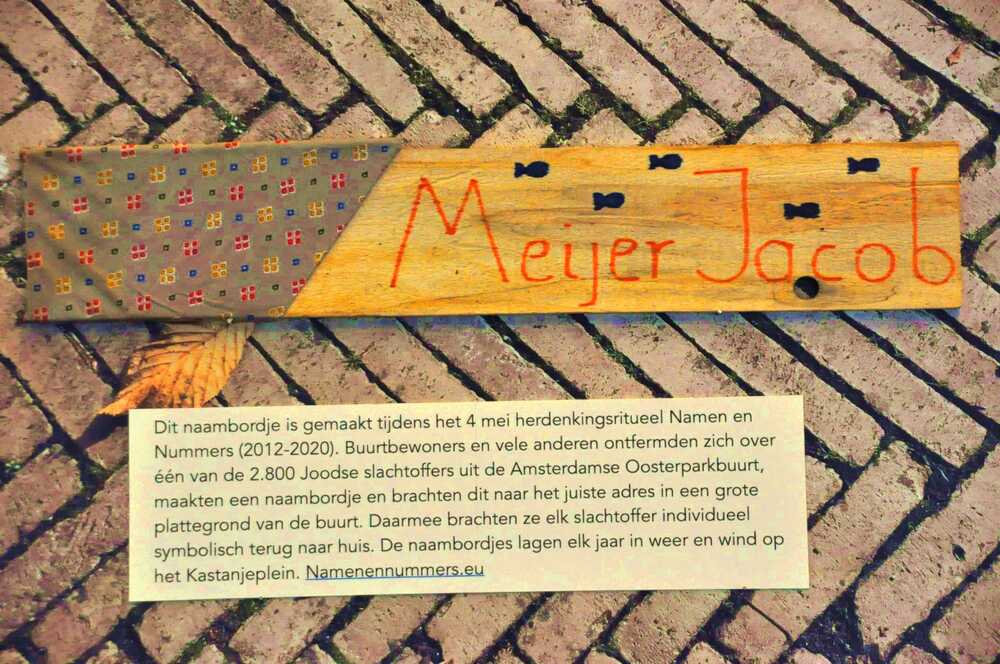 Meijer Jacob
Dit naambordje is gemaakt tijdens het 4 mei herdenkingsritueel Namen en
Nummers (2012-2020). Buurtbewoners en vele anderen ontfermden zich over
één van de 2.800 Joodse slachtoffers uit de Amsterdamse Oosterparkbuurt,
maakten een naambordje en brachten dit naar het juiste adres in een grote
plattegrond van de buurt. Daarmee brachten ze elk slachtoffer individueel
symbolisch terug naar huis. De naambordjes lagen elk jaar in weer en wind op
het Kastanjeplein. Namenennummers.eu